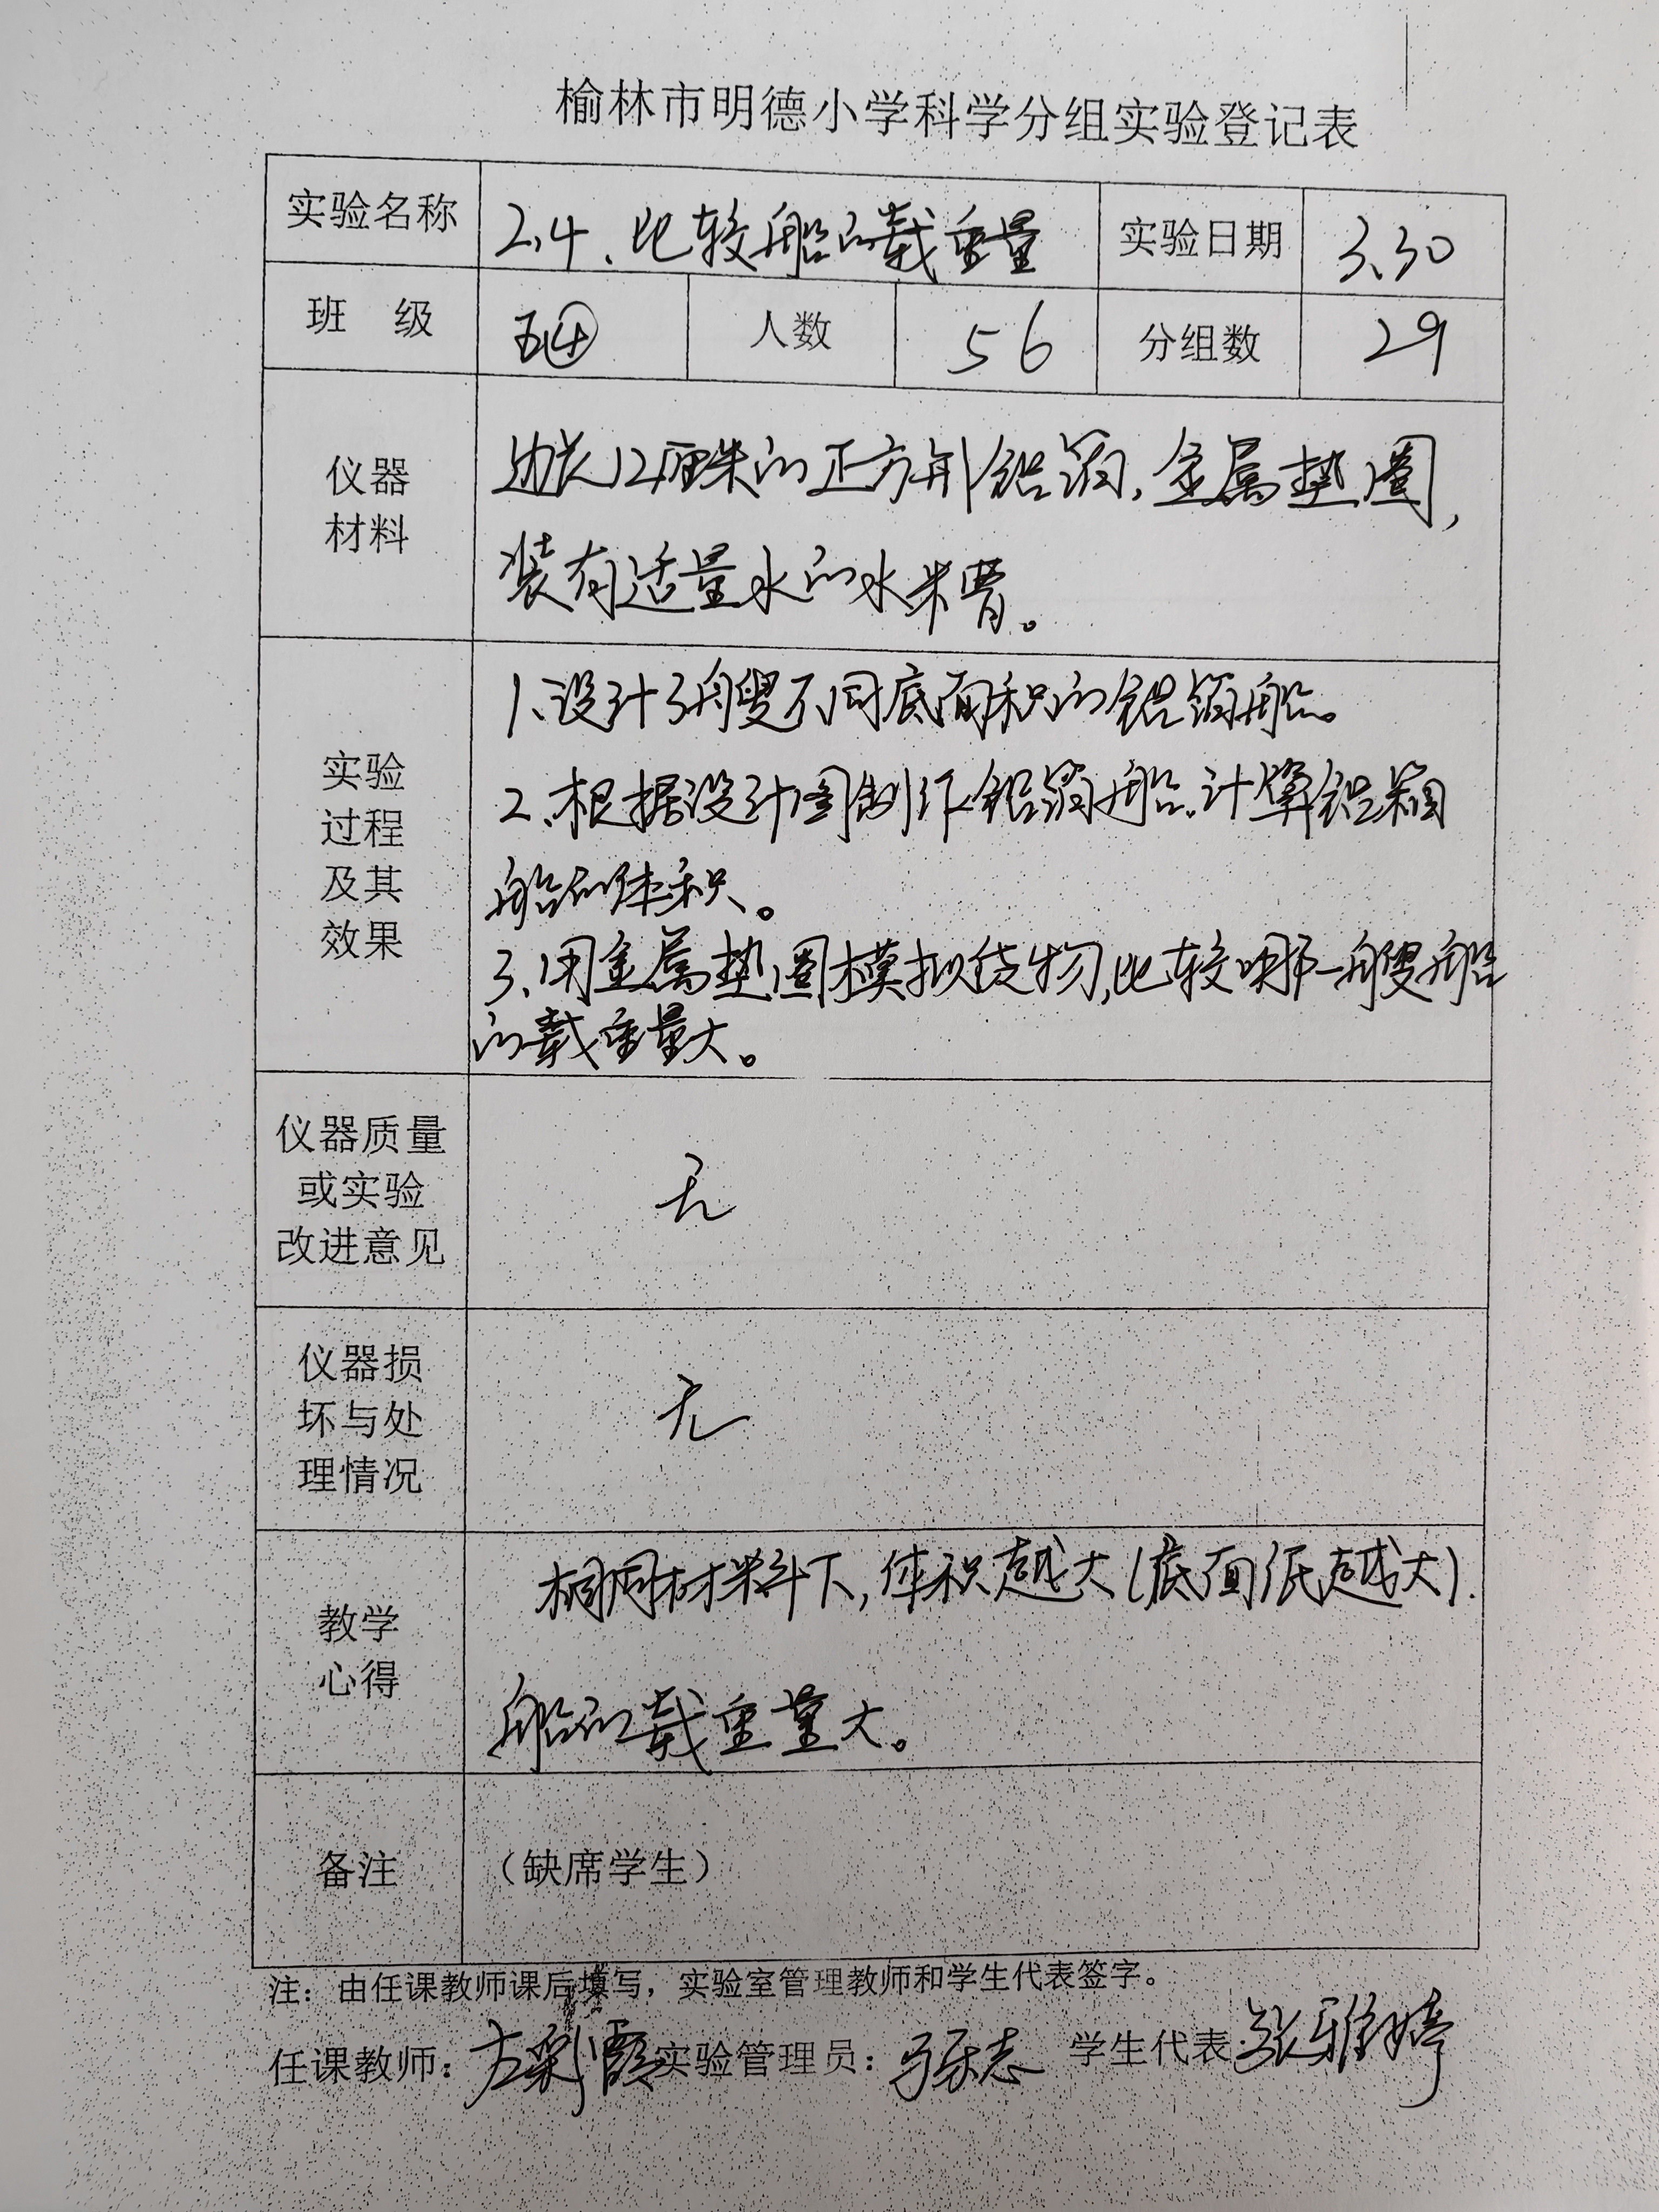 榆林市明德小学科学分组实验登记表
实验名称 2.4、比较船的载重量 实验日期 3.30
班 级 五④ 人数 56 分组数 29
仪器
材料
边长12厘米的正方形铝箔,金属垫圈,
装有适量水的水槽。
实验
过程
及其
效果
1.设计3艘不同底面积的铝箔船。
2.根据设计图制作铝箔船.计算铝箔
船的体积。
3.用金属垫圈模拟货物,比较哪一艘船
的载重量大。
仪器质量
或实验
改进意见
无
仪器损
坏与处
理情况
无
教学
心得
相同材料下,体积越大(底面积越大).
船的载重量大。
备注 (缺席学生)
注:由任课教师课后填写,实验室管理教师和学生代表签字。
任课教师: 实验管理员: 学生代表: 张雅婷